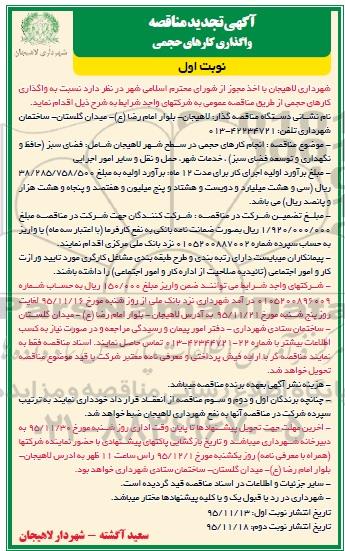 آگهی تجدید مناقصه
واگذاری کارهای حجمی
شهرداری لاهیجان
نوبت اول
شهرداری لاهیجان با اخذ مجوز از شورای محترم اسلامی شهر در نظر دارد نسبت به واگذاری
کارهای حجمی از طریق مناقصه عمومی به شرکتهای واجد شرایط به شرح ذیل اقدام نماید.
نام نشانی دستگاه مناقصه گذار: لاهیجان- بلوار امام رضا (ع)- میدان گلستان- ساختمان
شهرداری تلفن: ۴۲۲۳۴۷۲۱-۰۱۳
- موضوع مناقصه : انجام کارهای حجمی در سطح شهر لاهیجان شامل: فضای سبز (حافظ و
نگهداری و توسعه فضای سبز) ، خدمات شهر، حمل و نقل و سایر امور اجرایی
- مبلغ برآورد اولیه اجرای کار برای مدت ۱۲ ماه: برآورد اولیه به مبلغ ۳۸/۲۸۵/۷۵۸/۵۰۰
ریال (سی و هشت میلیارد و دویست و هشتاد و پنج میلیون و هفتصد و پنجاه و هشت هزار
و پانصد ریال) می باشد.
- مبلغ تضمین شرکت در مناقصه : شرکت کنندگان جهت شرکت در مناقصه مبلغ
۱/۹۲۰/۰۰۰/۰۰۰ ریال بصورت ضمانت نامه بانکی به نفع کارفرما (با اعتبار سه ماه) یا واریز
به حساب سپرده شماره ۰۱۰۵۲۰۰۸۸۷۰۰۲ نزد بانک ملی مرکزی اقدام نمایند.
- پیمانکاران میبایست دارای رتبه بندی و طرح طبقه بندی مشاغل کارگری مورد تایید وزارت
کار و امور اجتماعی (تائیدیه صلاحیت از اداره کار و امور اجتماعی) را داشته باشند.
- شرکتهای واجد شرایط می توانند ضمن واریز مبلغ ۱۵۰/۰۰۰ ریال به حساب شماره
۰۱۰۵۲۰۰۸۹۶۰۰۹ در آمد شهرداری نزد بانک ملی از روز شنبه مورخ ۹۵/۱۱/۱۶ لغایت
روز پنج شنبه مورخ ۹۵/۱۱/۲۱ به آدرس لاهیجان - بلوار امام رضا (ع)- میدان گلستان
- ساختمان ستادی شهرداری - دفتر امور پیمان و رسیدگی مراجعه و در صورت نیاز به کسب
اطلاعات بیشتر با شماره ۲۲-۴۲۲۳۴۷۲۱-۰۱۳ تماس حاصل نمایند. اسناد مناقصه فقط به
نماینده مناقصه گر با ارایه فیش پرداختی و معرفی نامه معتبر شرکت با قید موضوع مناقصه
تحویل خواهد شد.
- هزینه نشر آگهی بعهده برنده مناقصه میباشد.
- چنانچه برندگان اول و دوم و سوم مناقصه از انعقاد قرار داد خودداری نمایند به ترتیب
سپرده شرکت در مناقصه آنها به نفع شهرداری لاهیجان ضبط خواهد شد.
- آخرین مهلت جهت تحویل پیشنهادها تا پایان وقت اداری روز شنبه مورخ ۹۵/۱۱/۳۰ به
دبیرخانه شهرداری میباشد و تاریخ بازگشایی پاکتهای پیشنهادی با حضور نماینده شرکتها
(همراه با معرفی نامه) روز یکشنبه مورخ ۹۵/۱۲/۱ راس ساعت ۱۱ ظهر به ادرس لاهیجان-
بلوار امام رضا (ع)- میدان گلستان- ساختمان ستادی شهرداری خواهد بود.
- سایر جزئیات و اطلاعات در اسناد مناقصه قید گردیده است.
- شهرداری در رد یا قبول یک و یا کلیه پیشنهادها مختار میباشد.
تاریخ انتشار نوبت اول: ۹۵/۱۱/۱۳
تاریخ انتشار نوبت دوم: ۹۵/۱۱/۱۸
سعید آگشته - شهردار لاهیجان